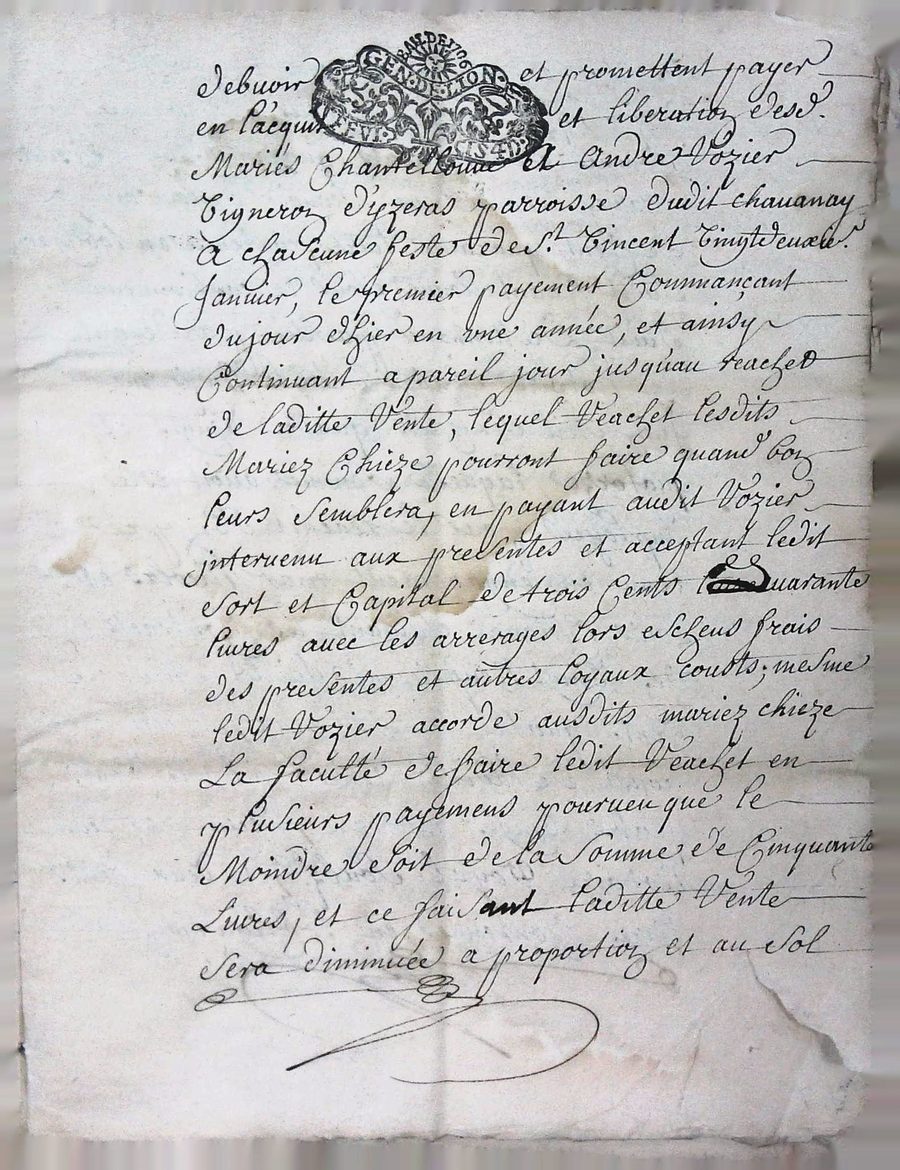 BAIL DE 1706
GEN·DE·LION·
debuoir et promettent payer
en lacquit et liberation desd.
Mariés Chantellouue et Andre Vozier
Vigneron d'yzeras parroisse dudit chauanay
a chascune feste de St. Vincent Vingtdeuxe.
Januier, le premier payement Commançant
dujour d'hier en vne année, et ainsy
Continuant a pareil jour jusquau reachet
de laditte Vente, lequel reachet lesdits
Mariez Chieze pourront faire quand bon
leurs Semblera, en payant audit Vozier
jnteruenu aux presentes et acceptant ledit
Sort et Capital de trois Cents quarante
liures auec les arrerages lors escheus frais
des presentes et autres loyaux cousts; mesme
ledit Vozier accorde ausdits mariez chieze
La faculté de faire ledit reachet en
plusieurs payemens pourueu que le
Moindre soit de la Somme de Cinquante
Liures, et ce faisant laditte Vente
sera diminuée a proportion et au Sol